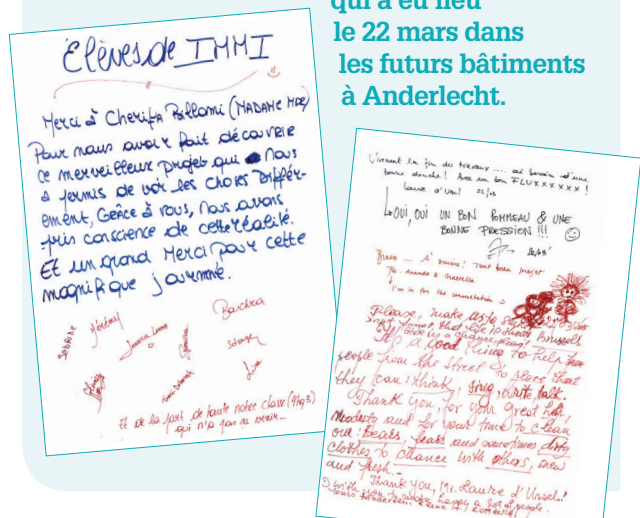 qui a eu lieu
le 22 mars dans
les futurs bâtiments
à Anderlecht.
Elèves de IMMI
Merci à Cherifa (MADAME MDR)
Pour nous avoir fait découvrir
ce merveilleux projet qui nous
a permis de voir les choses différ-
ement, Grâce à vous, nous avons
pris conscience de cette réalité.
Et un grand Merci pour cette
magnifique journée.
Bouchra
Jérémy
Sabrine
Et de la part de toute notre classe
qui n'a pas pu venir...
Vivement la fin des travaux .... au besoin d'une
bonne douche! Avec un bon FLUXXXXXX!
Laure d'Ursel 22/03
OUI, OUI UN BON POMMEAU & UNE
BONNE PRESSION !!!
Bravo ... Tout beau projet
I'm in for the consultation
Please, make us to
that life is Brussels
It's a good thing to help
people from the Street to place that
they can: think, sing, write, talk.
Thank you, for your great help,
Modesty and for your time to clean
our: Beats, and sometimes dirty
clothes to chance with others, new
and fresh.-
Thank you, Mr. Laure d'Ursel!
I wish you to make happy a lot of people.